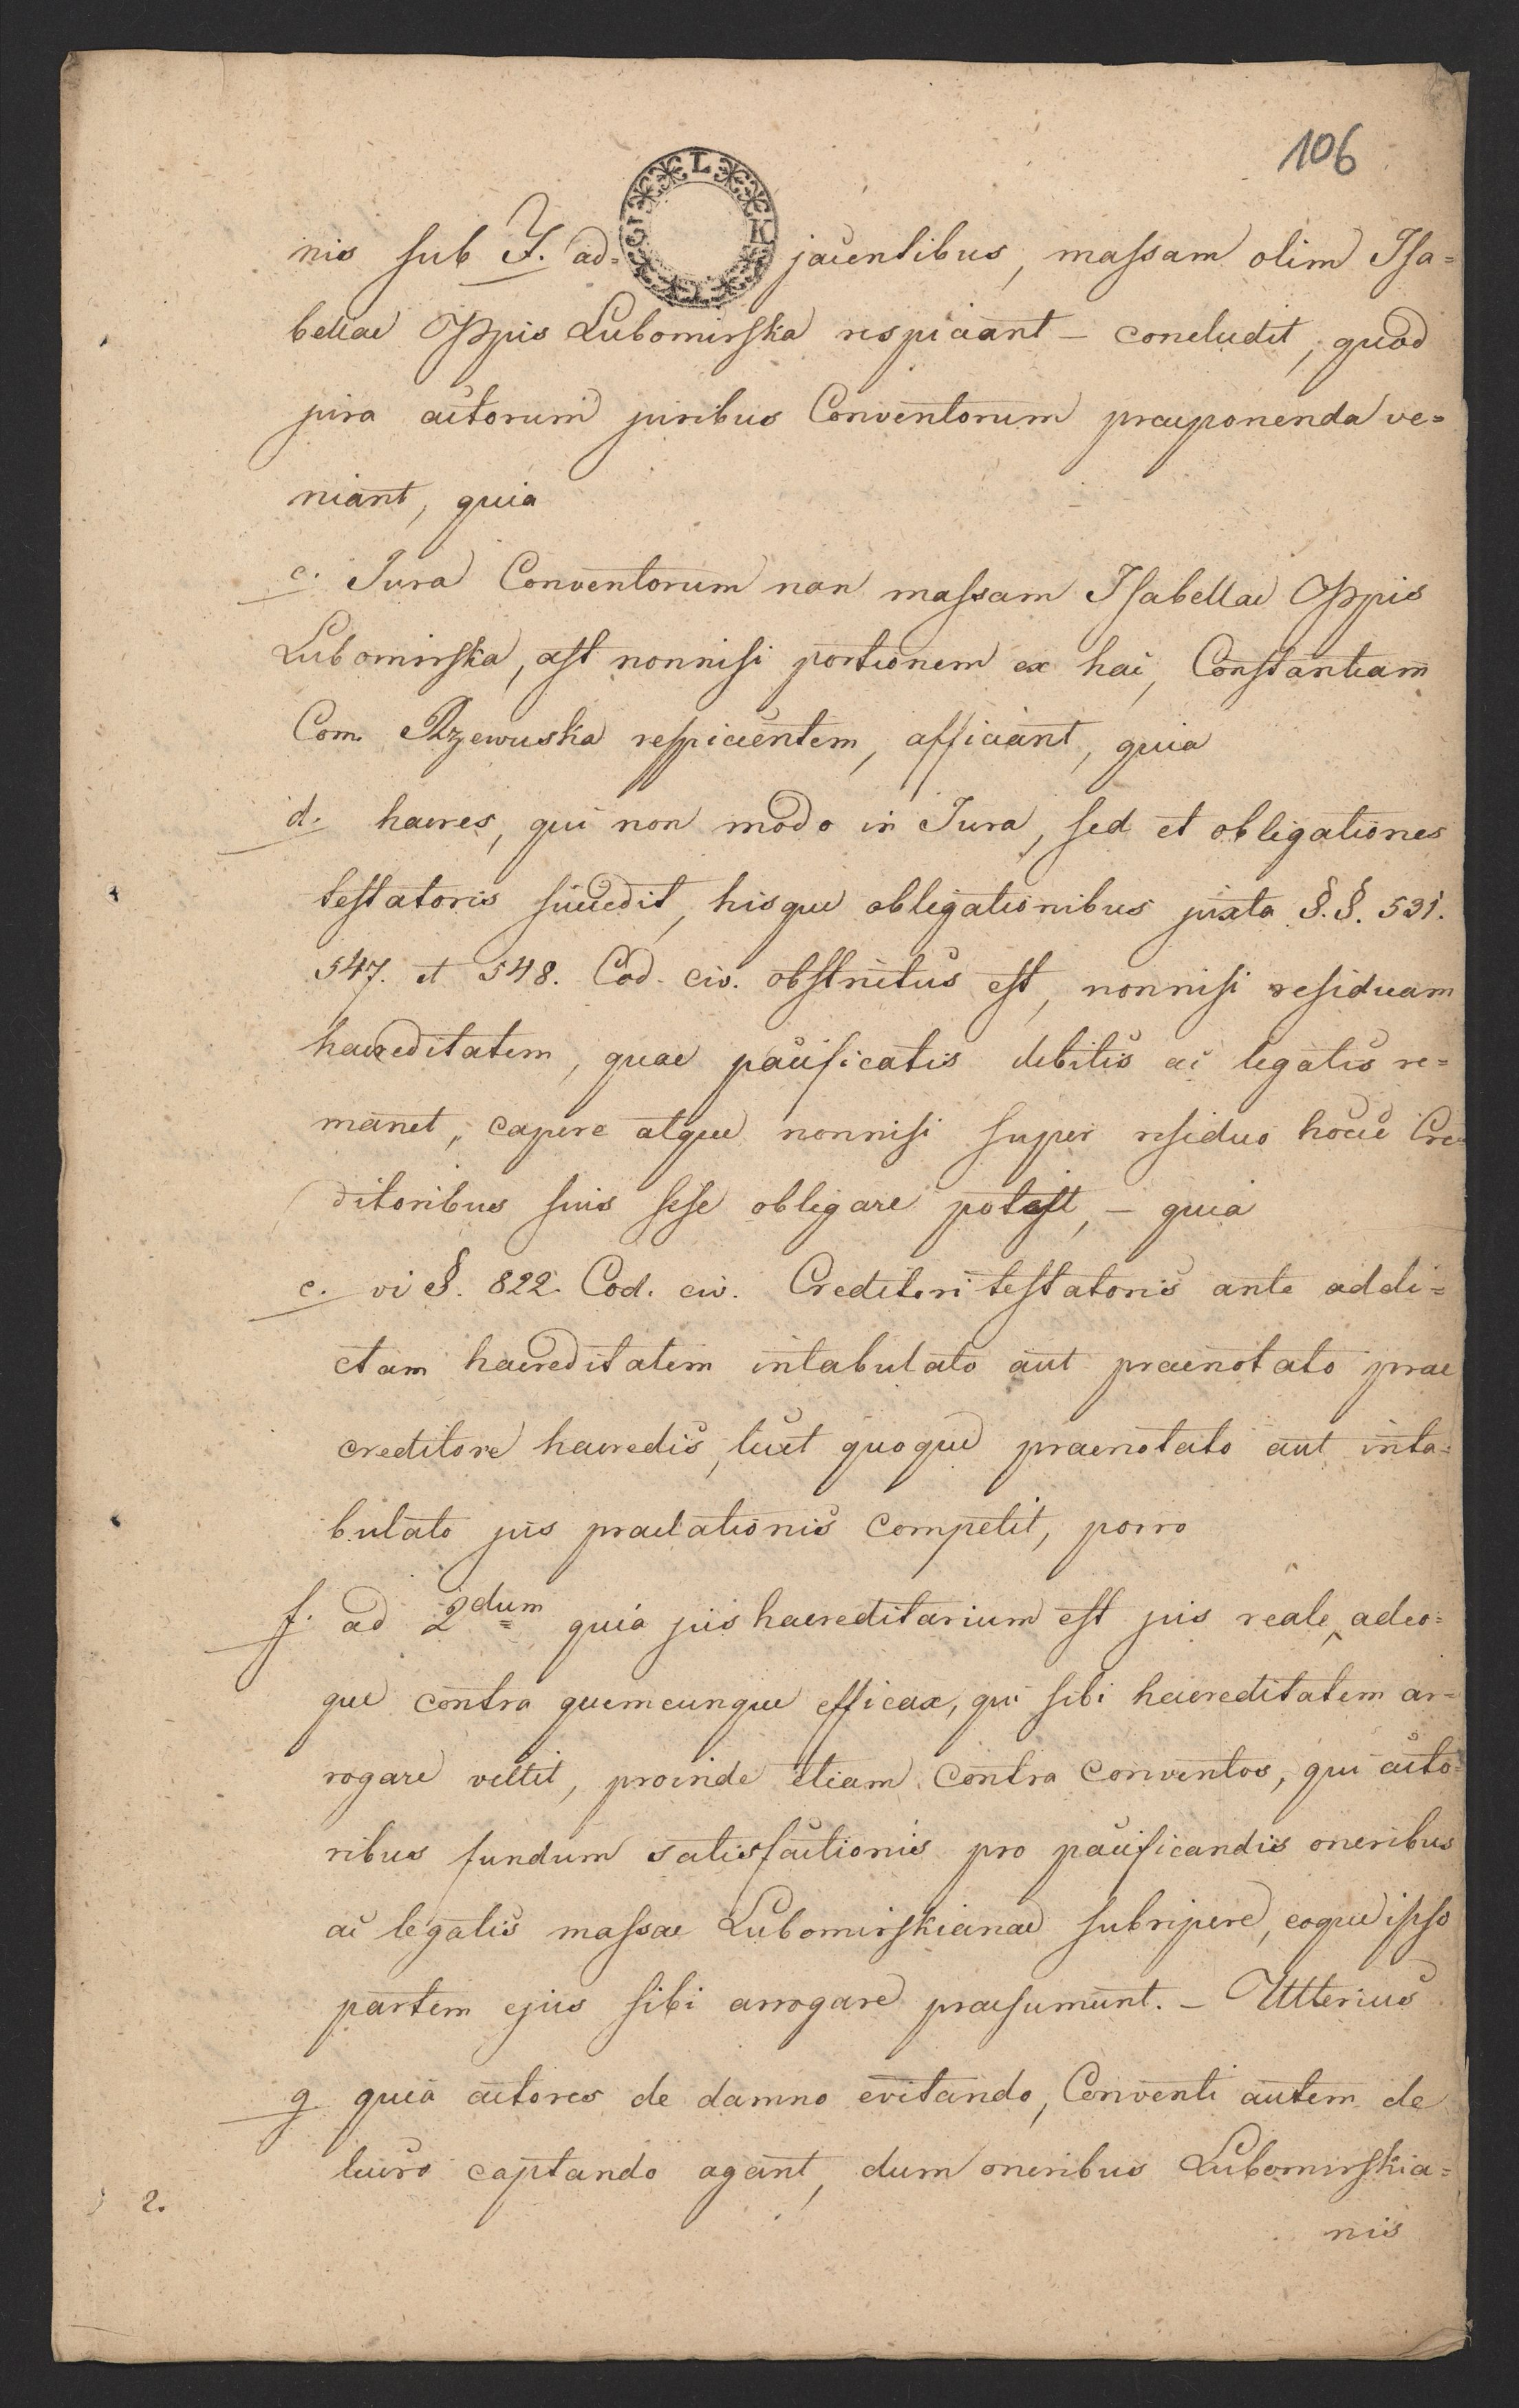 106
nis sub Y. ad= jacentibus, massam olim Isa=
bellae Ppis Lubomirska respiciant – concludit, quod
jura actorum juribus Conventorum praeponenda ve=
niant, quia
c. Jura Conventorum non massam Isabellae Ppis
Lubomirska, ast nonnisi portionem ex hac, Constantiam
Com. Rzewuska respicientem, afficiant, quia
d. haeres, qui non modo in Jura, sed et obligationes
testatoris succedit, hisque obligationibus juxta §.§. 531.
547. et 548. Cod. civ. obstrictus est, nonnisi residuam
haereditatem, quae pacificatis debitis ac legatis re=
manet, capere atque nonnisi super residuo hocce Cre
ditoribus suis sese obligare potest, – quia
e. vi §. 822. Cod. civ. Creditori testatoris ante addi=
ctam haereditatem intabulato aut praenotato prae
creditore haeredis, licet quoque praenotato aut inta=
bulato jus praelationis competit, porro
f. ad 2dum quia jus haereditarium est jus reale, adeo=
que contra quemcunque efficax, qui sibi haereditatem ar=
rogare vellet, proinde etiam contra conventos, qui acto=
ribus fundum satisfactionis pro pacificandis oneribus
ac legatis massae Lubomirskianae subripere, eoque ipso
partem ejus sibi arrogare praesumunt. – Ulterius
g. quia actores de damno evitando, Conventi autem de
lucro captando agant, dum oneribus Lubomirskia=
2.
nis